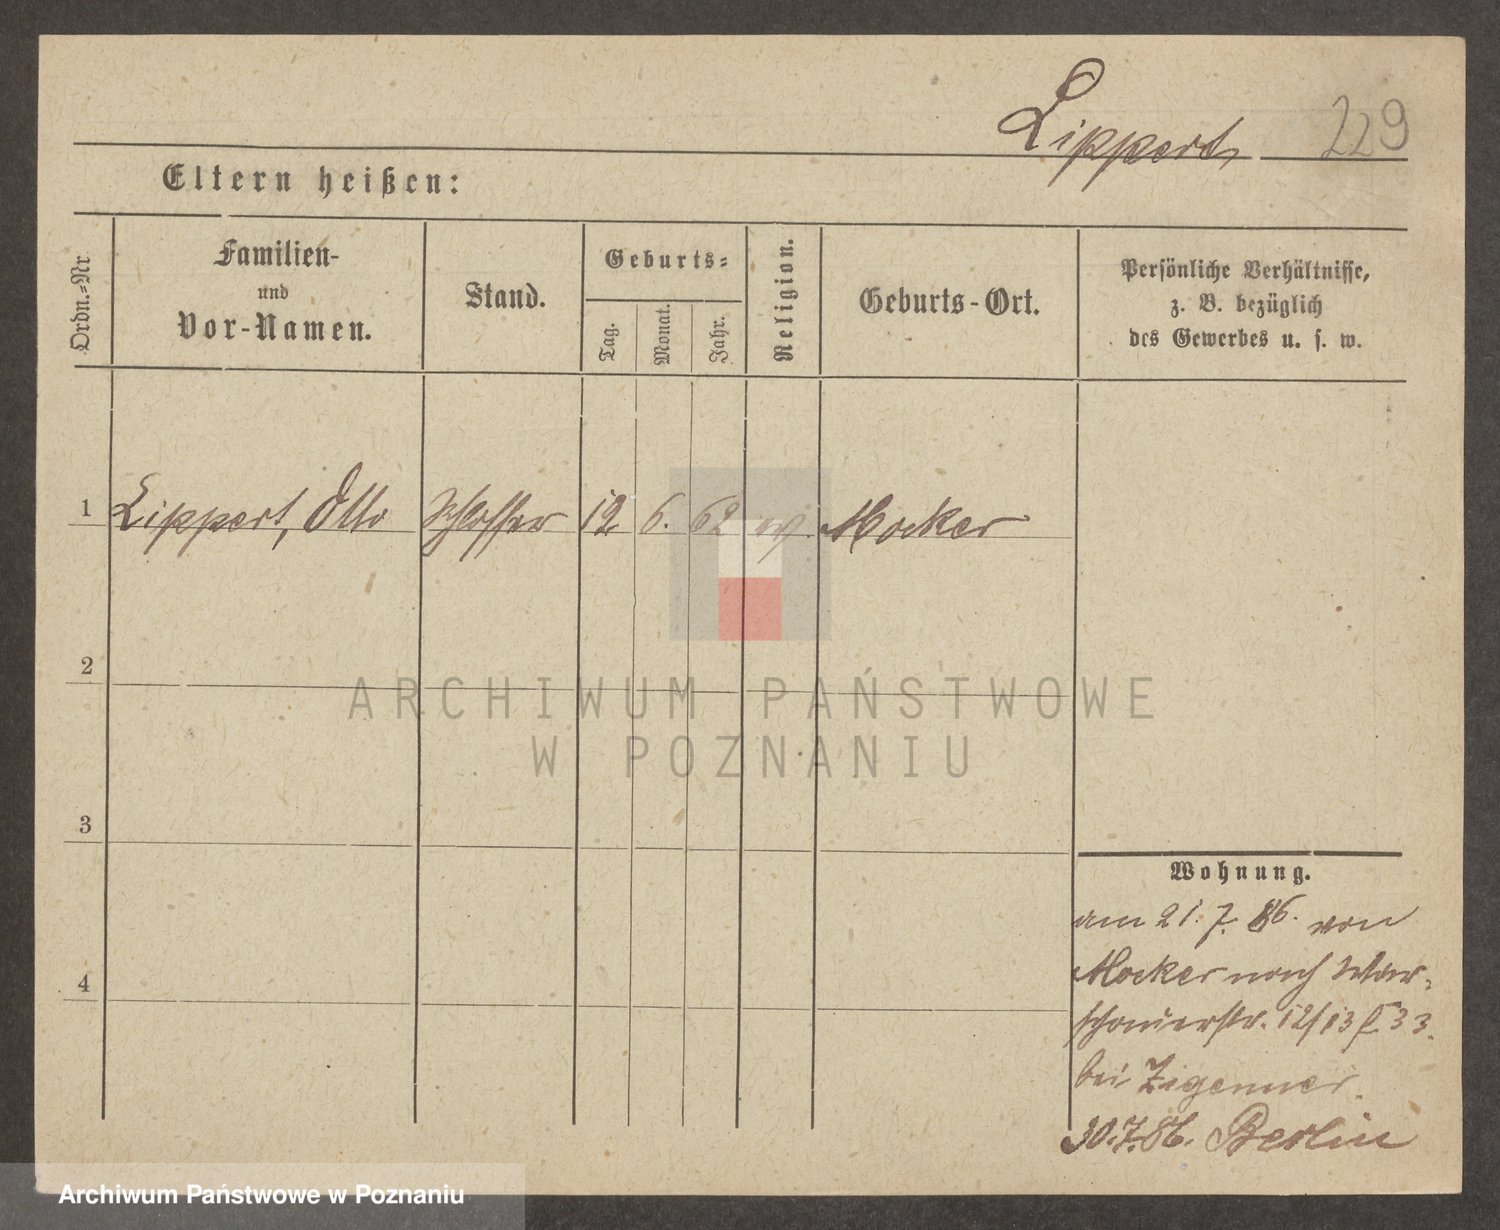 Lippert
229
Eltern heißen:
Ordn.-Nr.
Familien-
und
Vor-Namen.
Stand.
Geburts-
Tag.
Monat.
Jahr.
Religion.
Geburts-Ort.
Persönliche Verhältnisse,
z. B. bezüglich
des Gewerbes u. s. w.
1 Lippert, Otto Schlosser 12. 6. 62 ev. Mocker
2
3
4
Wohnung.
am 21. 7. 86. von
Mocker nach War-
schauerstr. 12/13 33.
bei Zigenner.
30.7.86. Berlin
ARCHIWUM PAŃSTWOWE
W POZNANIU
Archiwum Państwowe w Poznaniu